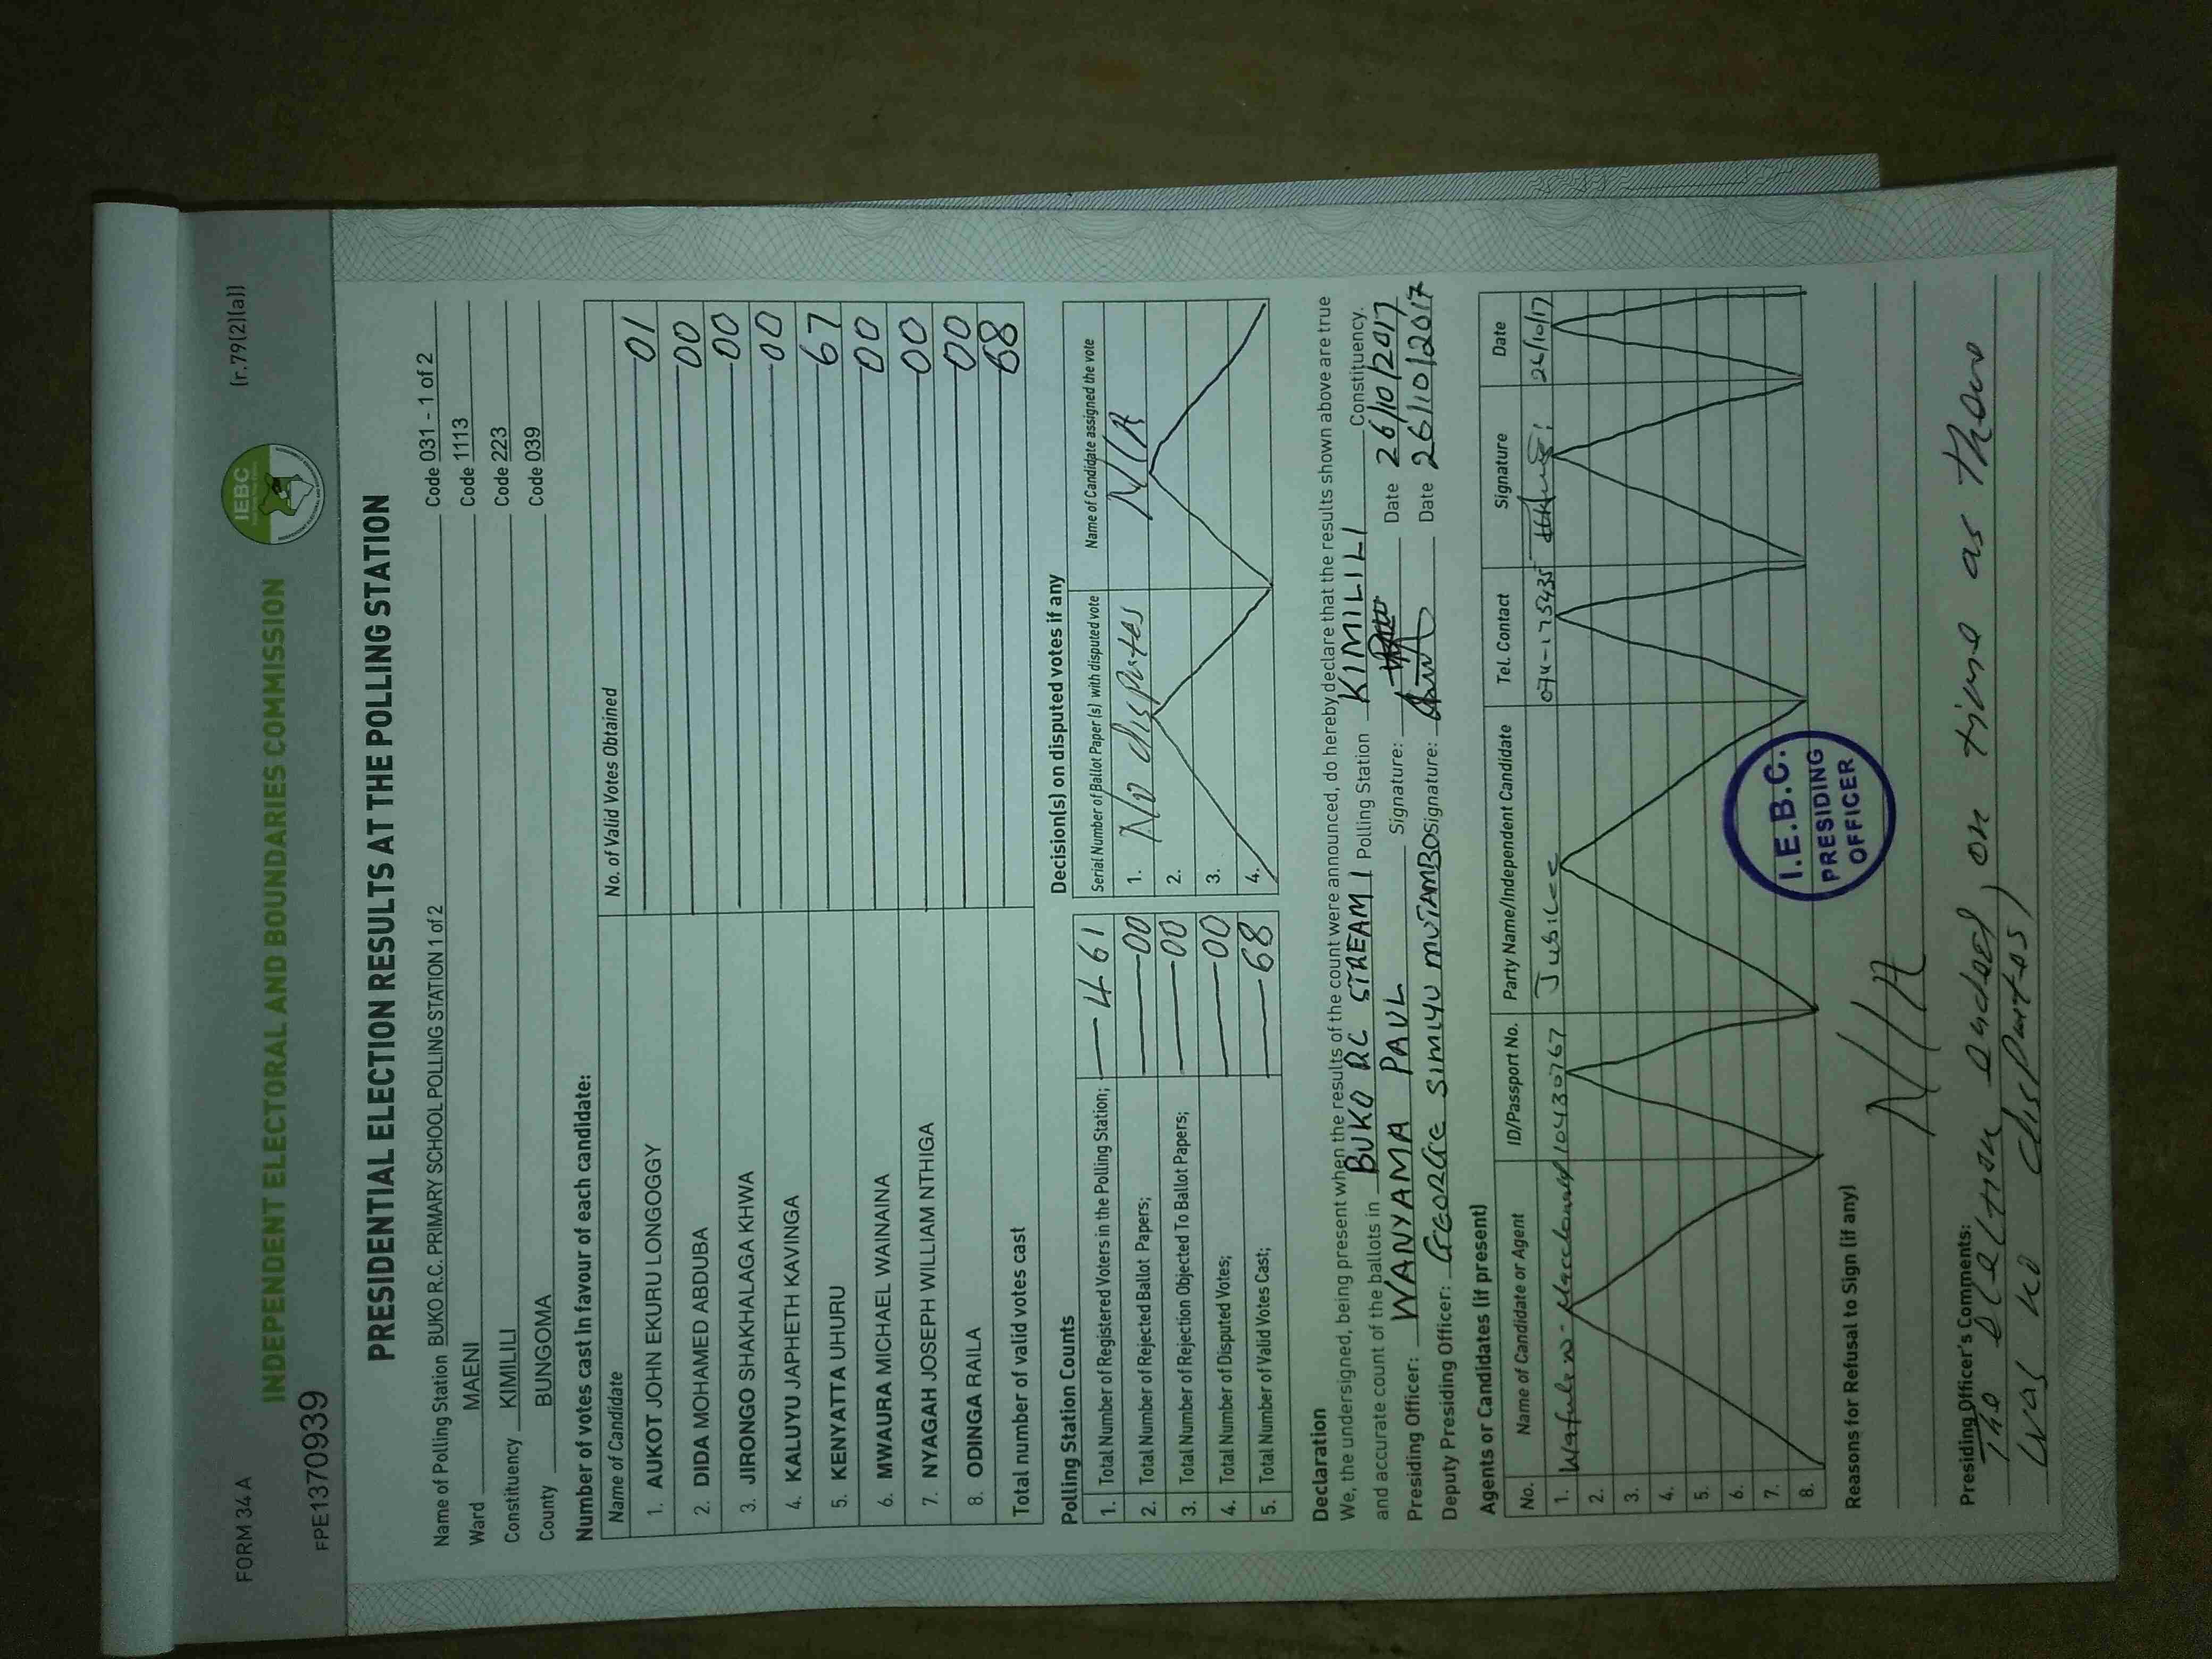 FORM 34 A
(r.79(2)(a))
IEBC
INDEPENDENT ELECTORAL AND BOUNDARIES COMMISSION
FPE1370939
PRESIDENTIAL ELECTION RESULTS AT THE POLLING STATION
Name of Polling Station BUKO R.C. PRIMARY SCHOOL POLLING STATION 1 of 2 Code 031 - 1 of 2
Ward MAENI Code 1113
Constituency KIMILILI Code 223
County BUNGOMA Code 039
Number of votes cast in favour of each candidate:
Name of Candidate No. of Valid Votes Obtained
1. AUKOT JOHN EKURU LONGOGGY 01
2. DIDA MOHAMED ABDUBA 00
3. JIRONGO SHAKHALAGA KHWA 00
4. KALUYU JAPHETH KAVINGA 00
5. KENYATTA UHURU 67
6. MWAURA MICHAEL WAINAINA 00
7. NYAGAH JOSEPH WILLIAM NTHIGA 00
8. ODINGA RAILA 00
Total number of valid votes cast 68
Polling Station Counts
1. Total Number of Registered Voters in the Polling Station; 461
2. Total Number of Rejected Ballot Papers; 00
3. Total Number of Rejection Objected To Ballot Papers; 00
4. Total Number of Disputed Votes; 00
5. Total Number of Valid Votes Cast; 68
Decision(s) on disputed votes if any
Serial Number of Ballot Paper (s) with disputed vote Name of Candidate assigned the vote
1. No disputes N/A
2.
3.
4.
Declaration
We, the undersigned, being present when the results of the count were announced, do hereby declare that the results shown above are true
and accurate count of the ballots in BUKO RC STREAM 1 Polling Station KIMILILI Constituency.
Presiding Officer: WANYAMA PAUL Signature: Date 26/10/2017
Deputy Presiding Officer: GEORGE SIMIYU MUTAMBO Signature: Date 26/10/2017
Agents or Candidates (if present)
No. Name of Candidate or Agent ID/Passport No. Party Name/Independent Candidate Tel. Contact Signature Date
1. 10430767 Jubilee 26/10/17
2.
3.
4.
5.
6.
7.
8.
I.E.B.C.
PRESIDING
OFFICER
Reasons for Refusal to Sign (if any)
N/A
Presiding Officer's Comments:
The election ended on time as there
was no disputes